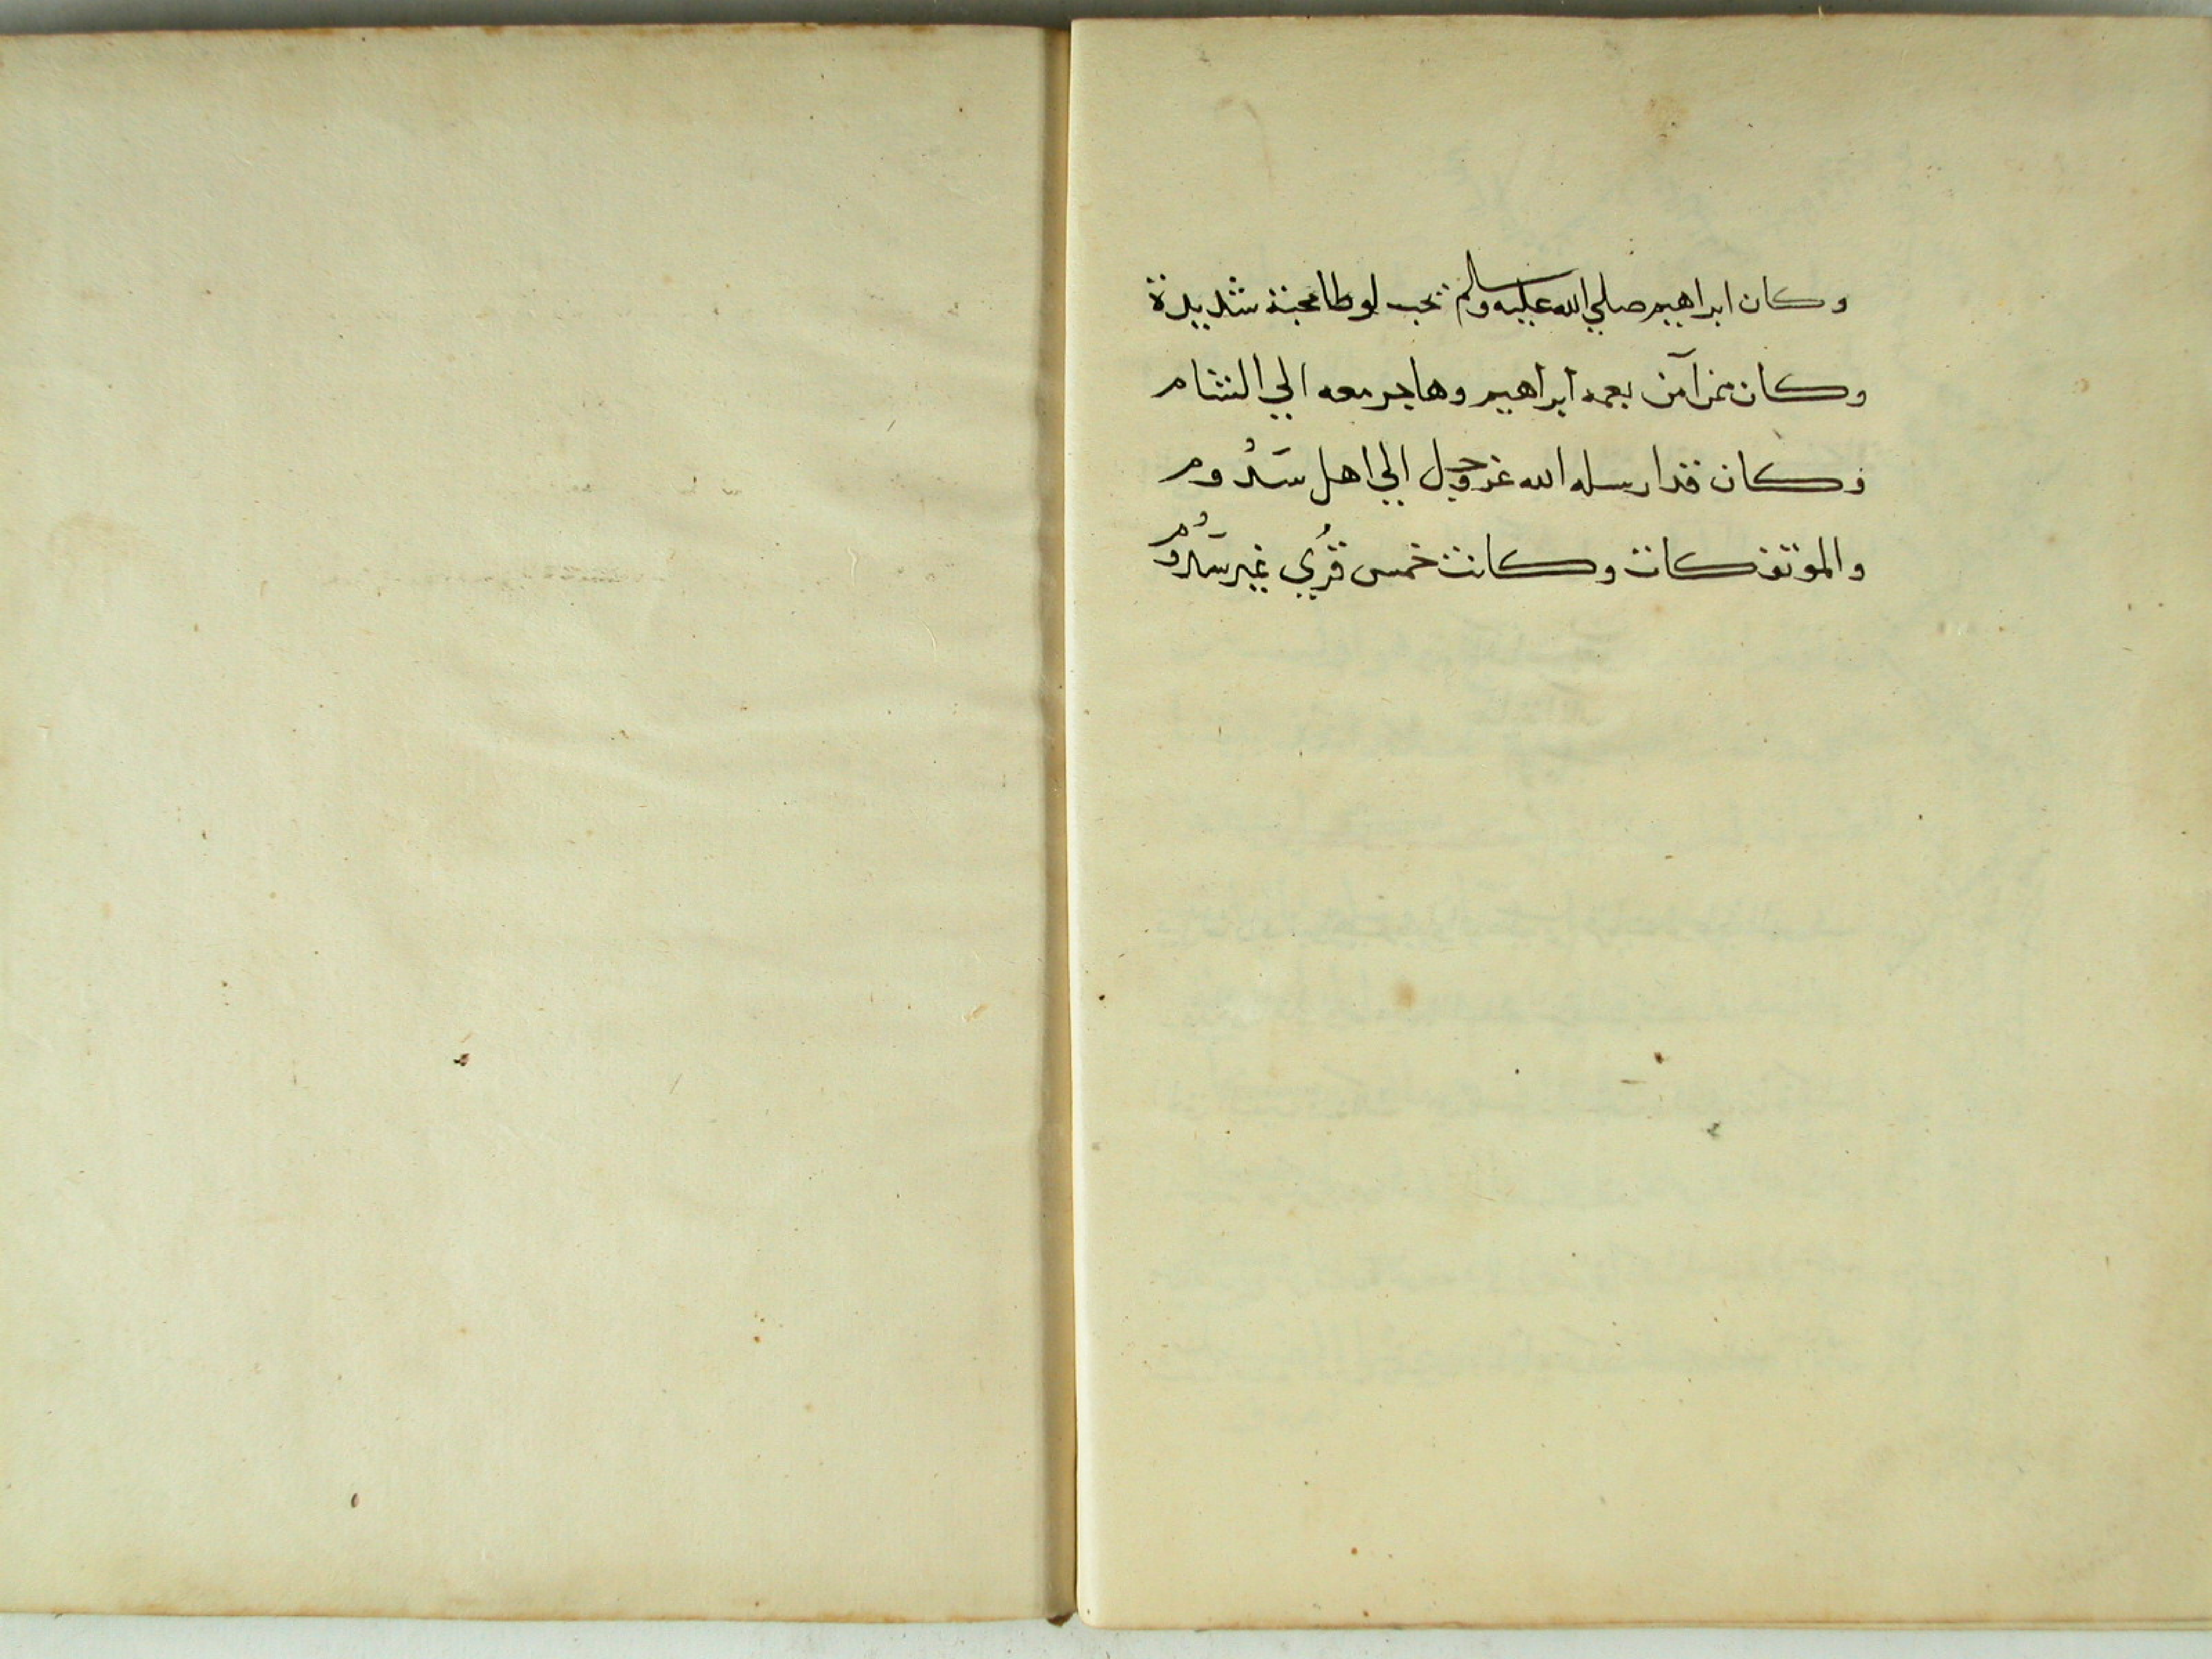 وكان ابراهيم صلي الله عليه وسلم يحب لوطا محبة شديدة
وكان ممن آمن بعمه ابراهيم وهاجر معه الي الشام
وكان قد ارسله الله عز وجل الي اهل سَدُوم
والموتفكات وكانت خمس قُرَي غير سَدُوم